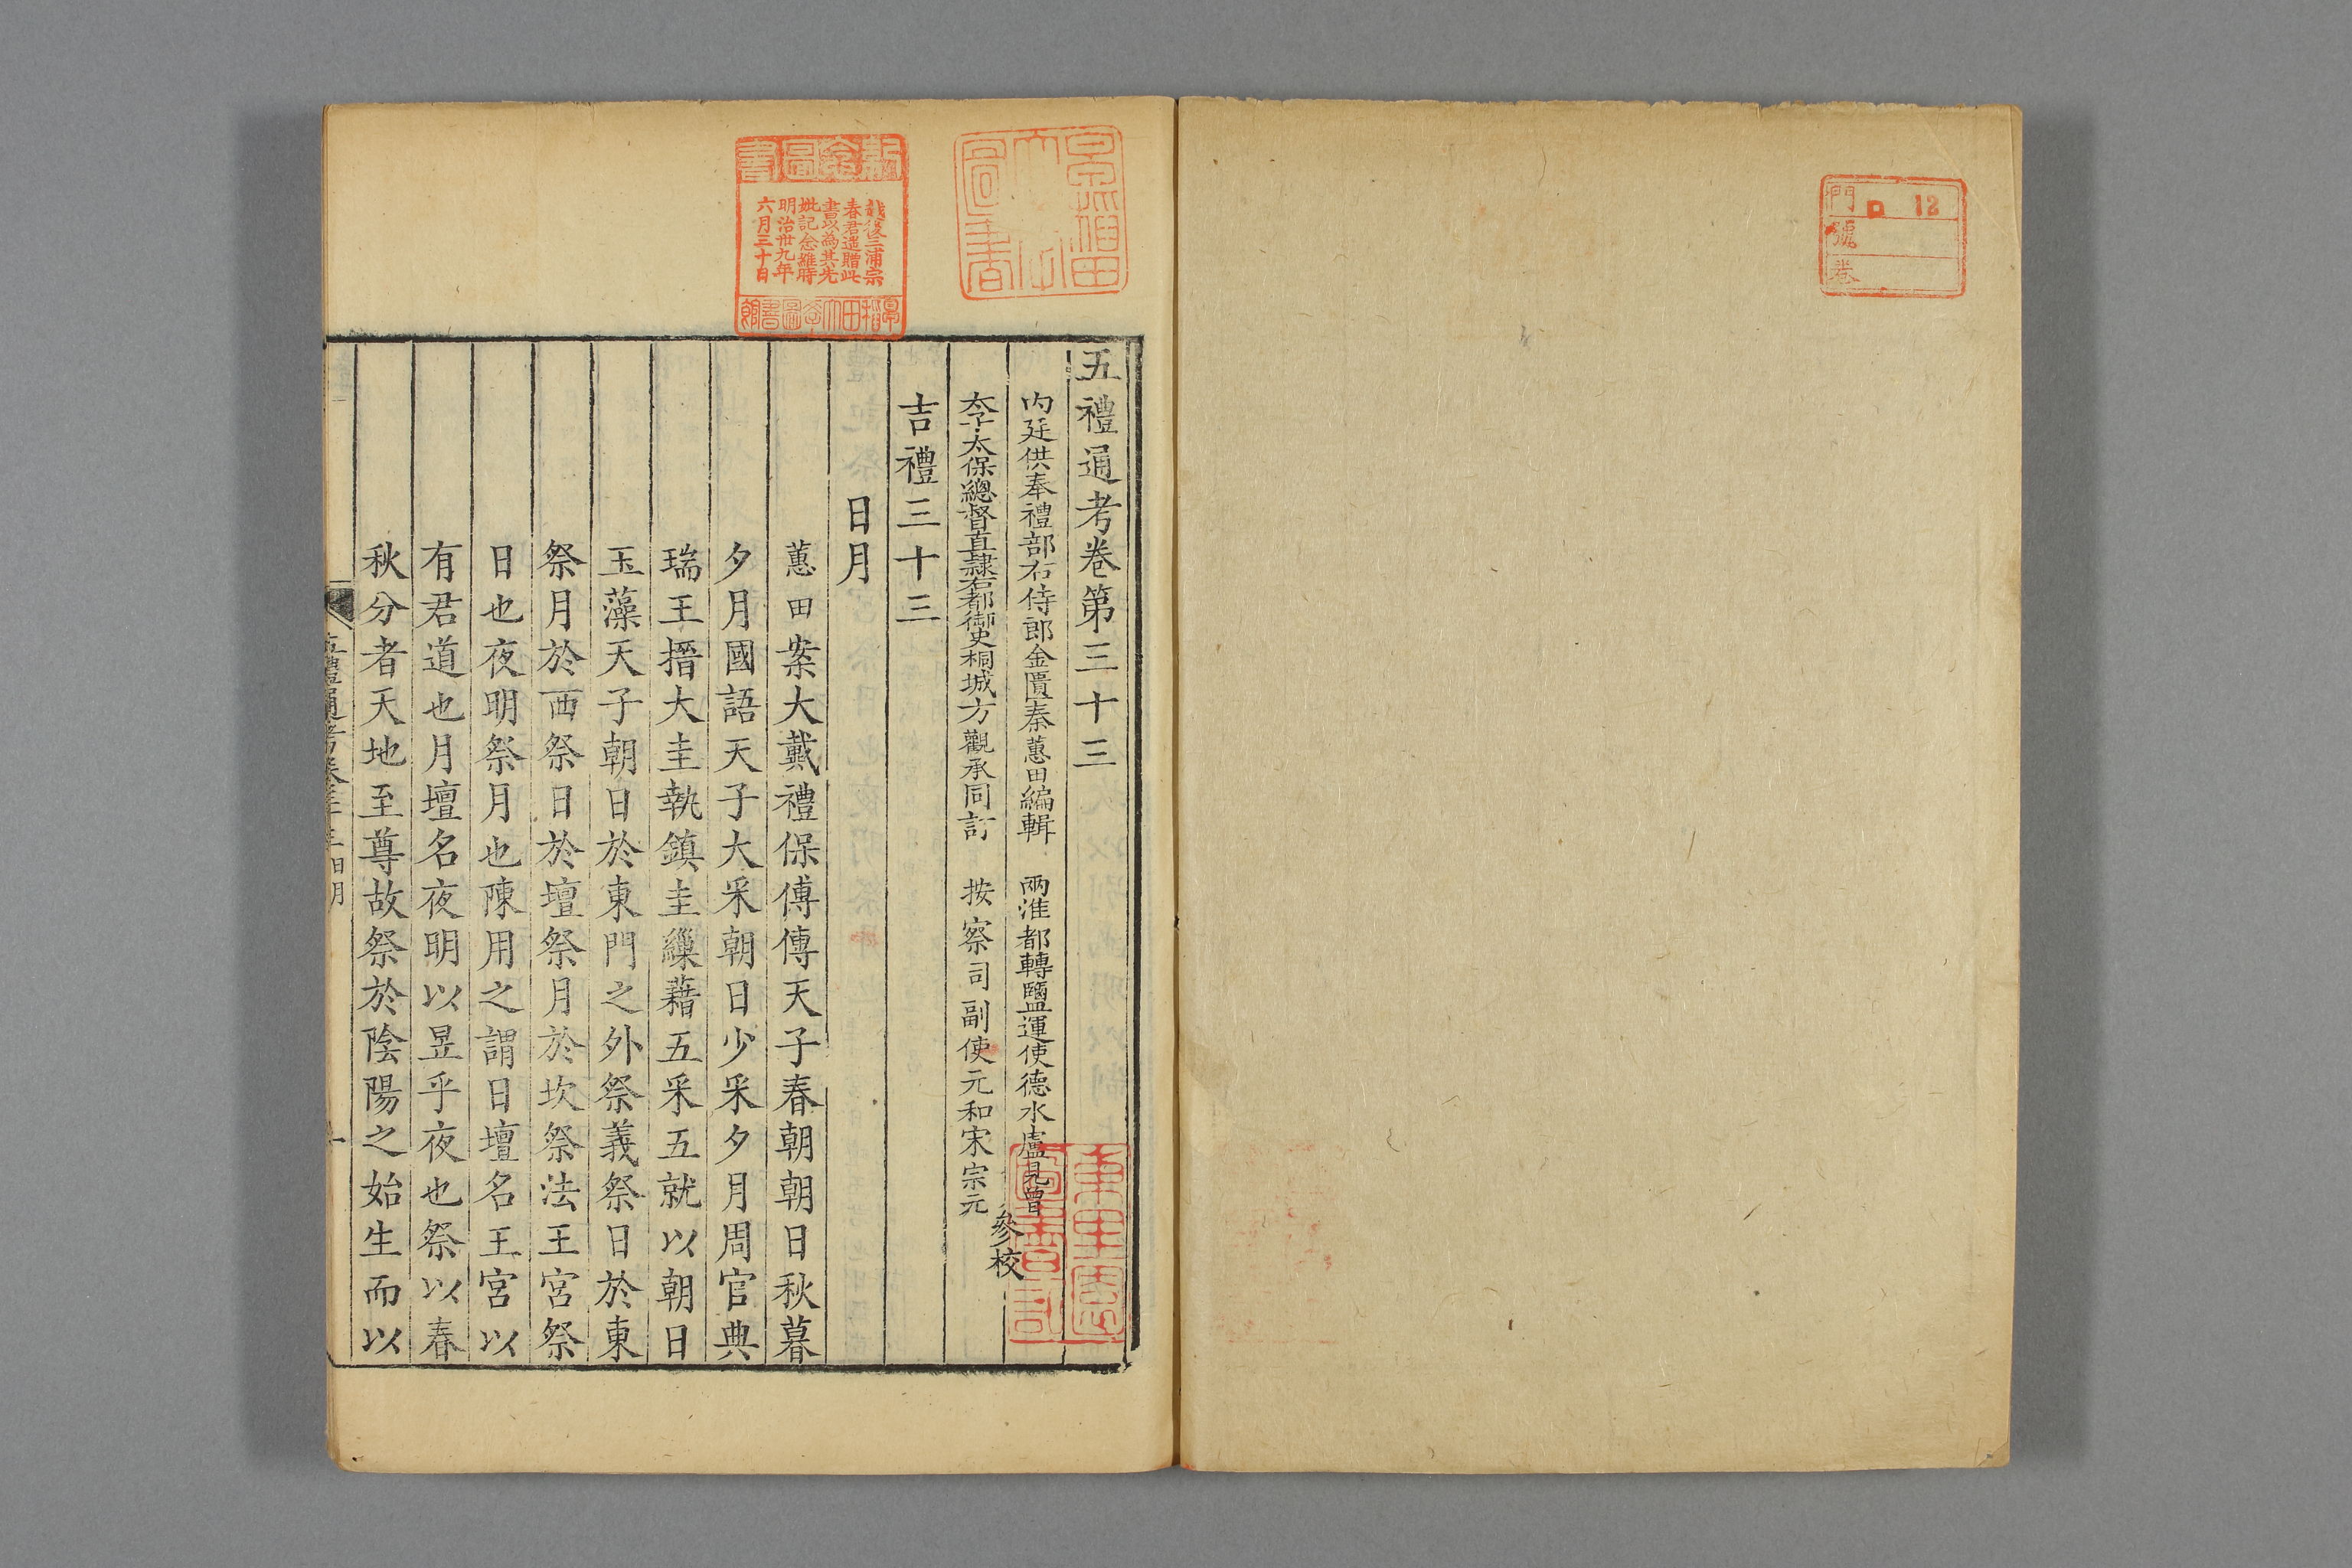 門 D 12
號
卷
景福田
大心
圖書
新會圖書
越後三浦宗
春君遥贈此
書以為其先
妣記念維時
明治卅九年
六月三十日
五禮通考卷第三十三
內廷供奉禮部右侍郎金匱秦蕙田編輯　兩淮都轉鹽運使德水盧見曾
太子太保總督直隸右都御史桐城方觀承同訂　按察司副使元和宋宗元
參校
吉禮三十三
日月
蕙田案大戴禮保傅傳天子春朝朝日秋暮
夕月國語天子大采朝日少采夕月周官典
瑞王搢大圭執鎮圭繅藉五采五就以朝日
玉藻天子朝日於東門之外祭義祭日於東
祭月於西祭日於壇祭月於坎祭法王宮祭
日也夜明祭月也陳用之謂日壇名王宮以
有君道也月壇名夜明以昱乎夜也祭以春
秋分者天地至尊故祭於陰陽之始生而以
五禮通考卷三十三 日月
一